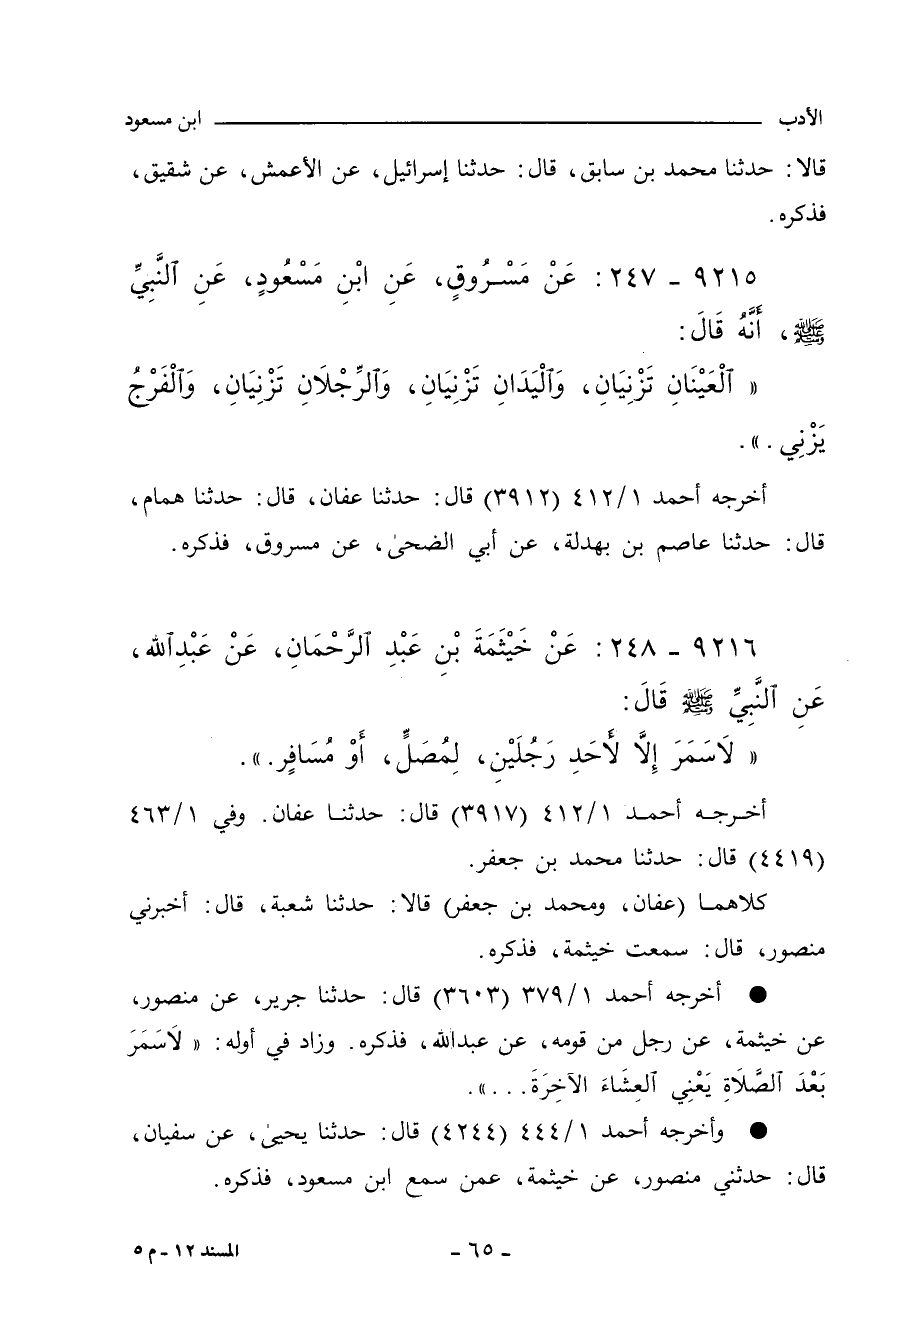 الأدب ــــــــــ ابن مسعود
قالا: حدثنا محمد بن سابق، قال: حدثنا إسرائيل، عن الأعمش، عن شقيق،
فذكره.
٩٢١٥ - ٢٤٧: عَنْ مَسْرُوقٍ، عَنِ ابْنِ مَسْعُودٍ، عَنِ ٱلنَّبِيِّ
ﷺ، أَنَّهُ قَالَ:
« ٱلْعَيْنَانِ تَزْنِيَانِ، وَٱلْيَدَانِ تَزْنِيَانِ، وَٱلرِّجْلَانِ تَزْنِيَانِ، وَٱلْفَرْجُ
يَزْنِي. ».
أخرجه أحمد ٤١٢/١ (٣٩١٢) قال: حدثنا عفان، قال: حدثنا همام،
قال: حدثنا عاصم بن بهدلة، عن أبي الضحىٰ، عن مسروق، فذكره.
٩٢١٦ - ٢٤٨: عَنْ خَيْثَمَةَ بْنِ عَبْدِ ٱلرَّحْمَانِ، عَنْ عَبْدِٱللهِ،
عَنِ ٱلنَّبِيِّ ﷺ قَالَ:
« لَاسَمَرَ إِلَّا لِأَحَدِ رَجُلَيْنِ، لِمُصَلٍّ، أَوْ مُسَافِرٍ. ».
أخرجه أحمد ٤١٢/١ (٣٩١٧) قال: حدثنا عفان. وفي ٤٦٣/١
(٤٤١٩) قال: حدثنا محمد بن جعفر.
كلاهما (عفان، ومحمد بن جعفر) قالا: حدثنا شعبة، قال: أخبرني
منصور، قال: سمعت خيثمة، فذكره.
● أخرجه أحمد ٣٧٩/١ (٣٦٠٣) قال: حدثنا جرير، عن منصور،
عن خيثمة، عن رجل من قومه، عن عبدالله، فذكره. وزاد في أوله: « لَاسَمَرَ
بَعْدَ ٱلصَّلَاةِ يَعْنِي ٱلعِشَاءَ الآخِرَةَ...».
● وأخرجه أحمد ٤٤٤/١ (٤٢٤٤) قال: حدثنا يحيىٰ، عن سفيان،
قال: حدثني منصور، عن خيثمة، عمن سمع ابن مسعود، فذكره.
- ٦٥ -
المسند ١٢ - م ٥